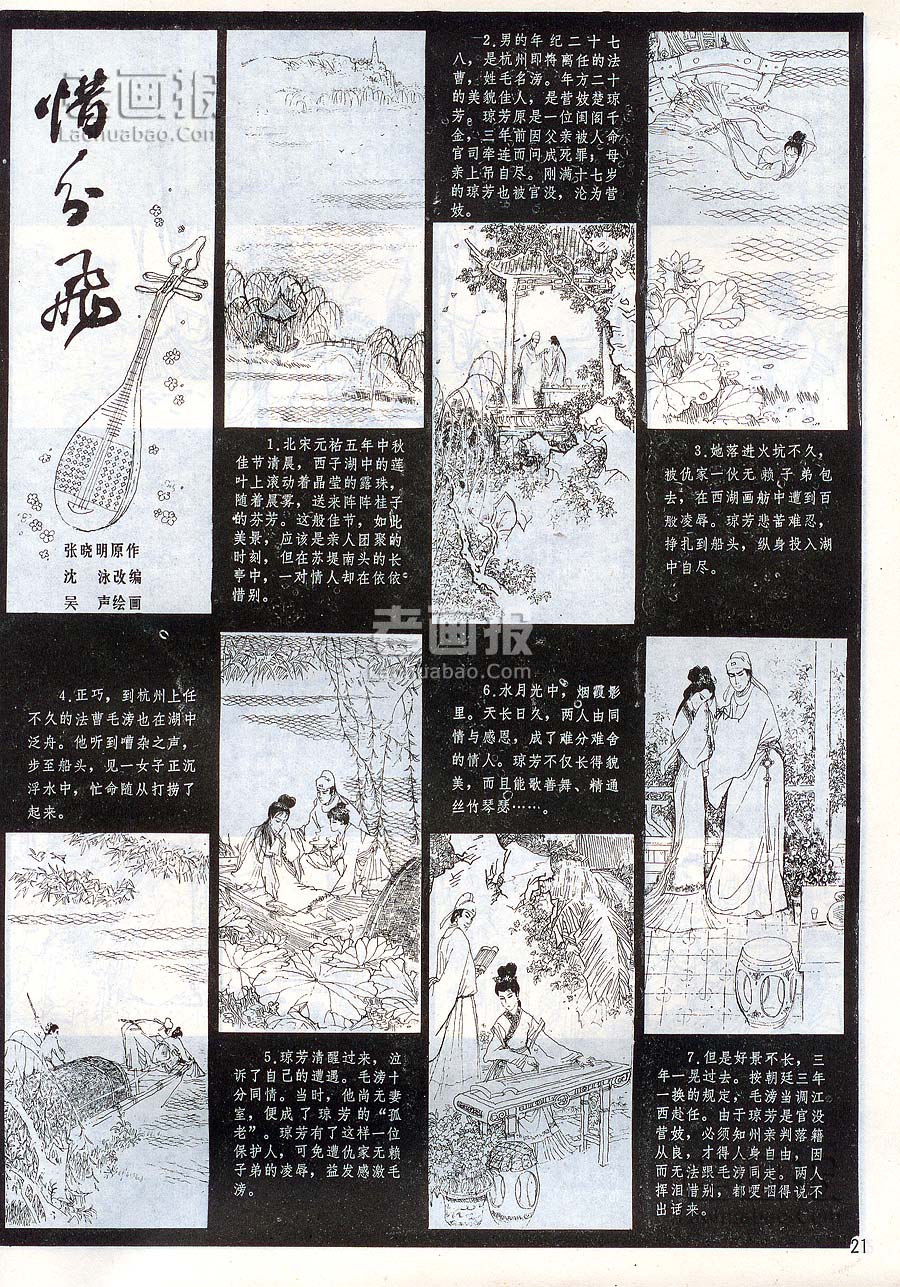 惜分飞
张晓明原作
沈　泳改编
吴　声绘画
1.北宋元祐五年中秋
佳节清晨，西子湖中的莲
叶上滚动着晶莹的露珠，
随着晨雾，送来阵阵桂子
的芬芳。这般佳节，如此
美景，应该是亲人团聚的
时刻，但在苏堤南头的长
亭中，一对情人却在依依
惜别。
2.男的年纪二十七
八，是杭州即将离任的法
曹，姓毛名滂。年方二十
的美貌佳人，是营妓楚琼
芳。琼芳原是一位闺阁千
金，三年前因父亲被人命
官司牵连而问成死罪，母
亲上吊自尽。刚满十七岁
的琼芳也被官没，沦为营
妓。
3.她落进火坑不久，
被仇家一伙无赖子弟包
去，在西湖画舫中遭到百
般凌辱。琼芳悲苦难忍，
挣扎到船头，纵身投入湖
中自尽。
4.正巧，到杭州上任
不久的法曹毛滂也在湖中
泛舟。他听到嘈杂之声，
步至船头，见一女子正沉
浮水中，忙命随从打捞了
起来。
5.琼芳清醒过来，泣
诉了自己的遭遇。毛滂十
分同情。当时，他尚无妻
室，便成了琼芳的“孤
老”。琼芳有了这样一位
保护人，可免遭仇家无赖
子弟的凌辱，益发感激毛
滂。
6.水月光中，烟霞影
里。天长日久，两人由同
情与感恩，成了难分难舍
的情人。琼芳不仅长得貌
美，而且能歌善舞、精通
丝竹琴瑟……。
7.但是好景不长，三
年一晃过去。按朝廷三年
一换的规定，毛滂当调江
西赴任。由于琼芳是官没
营妓，必须知州亲判落籍
从良，才得人身自由，因
而无法跟毛滂同走。两人
挥泪惜别，都哽咽得说不
出话来。
21
老画报
Laohuabao.Com
老画报
Laohuabao.Com